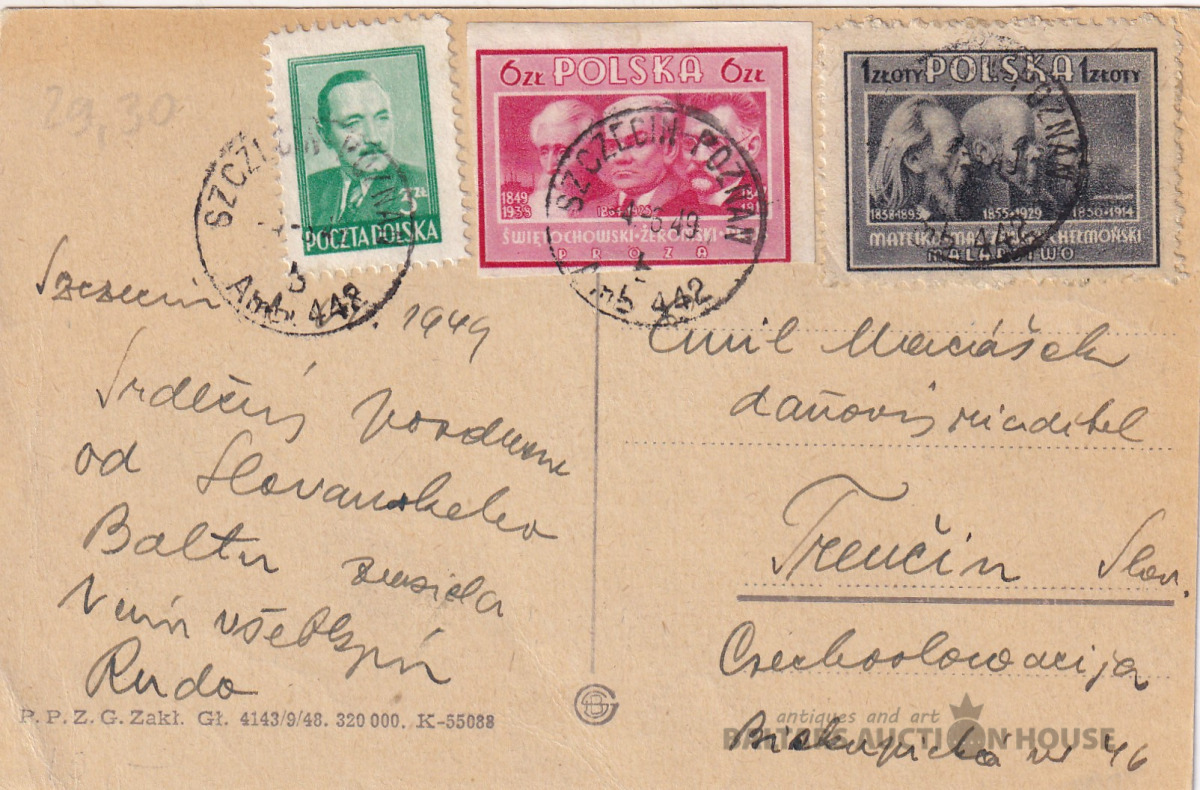 29,30
3 ZŁ
POCZTA POLSKA
6ZŁ POLSKA 6ZŁ
1849
1938
ŚWIĘTOCHOWSKI·ŻEROMSKI
PROZA
1 ZŁOTY POLSKA 1 ZŁOTY
1838-1893 1855-1929 1850-1914
MATEJKO CHEŁMOŃSKI
MALARSTWO
SZCZECIN POZNAŃ
Amb. 442
SZCZECIN-POZNAŃ
4-6 49
Amb 442
POZNAŃ
442
Szczecin 1949
Srdečný pozdrav
od Slovanského
Baltu
Vám všetkým
Rudo
Emil Maciášek
daňový riaditel
Trenčín Slov.
Czechoslowacija
Biskupická 46
P. P. Z. G. Zakł. Gł. 4143/9/48. 320 000. K-55088
antiques and art
BALTIKS AUCTION HOUSE